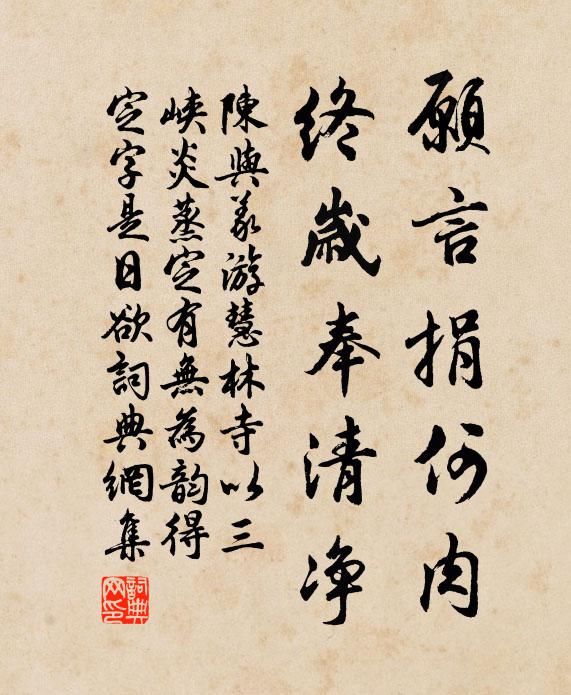 願言捐何肉
終歲奉清淨
陳與義游慧林寺以三
峽炎蒸定有無為韵得
定字是日欲詞典網集
詞典網印